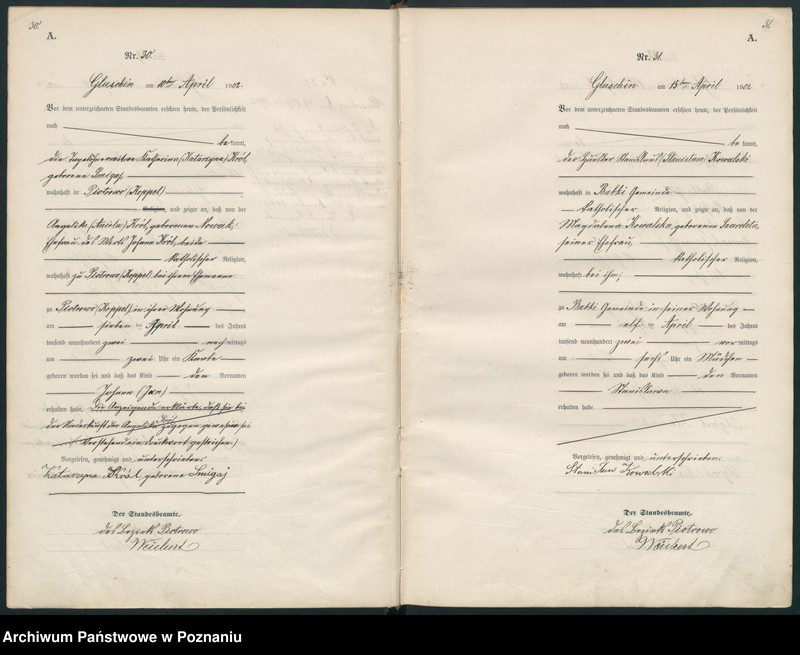 30.
A.
Nr. 30.
Gluschin am 10ten April 1902
Vor dem unterzeichneten Standesbeamten erschien heute, der Persönlichkeit
nach
be kannt,
die Katharina (Katarzyna) Król,
geborene Smigaj,
wohnhaft in Piotrowo (Koppel)
Religion, und zeigte an, daß von der
Angelika (Aniela) Król, geborenen Nowak,
Ehefrau des Wirts Johann Król, beide
katholischer Religion,
wohnhaft zu Piotrowo (Koppel) bei ihrem Ehemann
zu Piotrowo (Koppel) in ihrer Wohnung
am sieben ten April des Jahres
tausend neunhundert zwei nach mittags
um zwei Uhr ein Knabe
geboren worden sei und daß das Kind den Vornamen
Johann (Jan)
erhalten habe. Die Anzeigende erklärte, daß sie bei
der Niederkunft der Angelika Król zugegen gewesen sei.
Vorstehend ein Druckwort gestrichen.
Vorgelesen, genehmigt und unterschrieben
Katarzyna Król geborene Smigaj
Der Standesbeamte.
des Bezirk Piotrowo
31.
A.
Nr. 31.
Gluschin am 13ten April 1902
Vor dem unterzeichneten Standesbeamten erschien heute, der Persönlichkeit
nach
be kannt,
der Häusler Stanislaus (Stanislaw) Kowalski
wohnhaft in Babki Gemeinde
katholischer Religion, und zeigte an, daß von der
Magdalena Kowalska, geborenen
seiner Ehefrau,
katholischer Religion,
wohnhaft bei ihm,
zu Babki Gemeinde in seiner Wohnung
am elf ten April des Jahres
tausend neunhundert zwei vor mittags
um sechs Uhr ein Mädchen
geboren worden sei und daß das Kind den Vornamen
Stanislawa
erhalten habe.
Vorgelesen, genehmigt und unterschrieben
Stanisław Kowalski
Der Standesbeamte.
des Bezirk Piotrowo
Archiwum Państwowe w Poznaniu